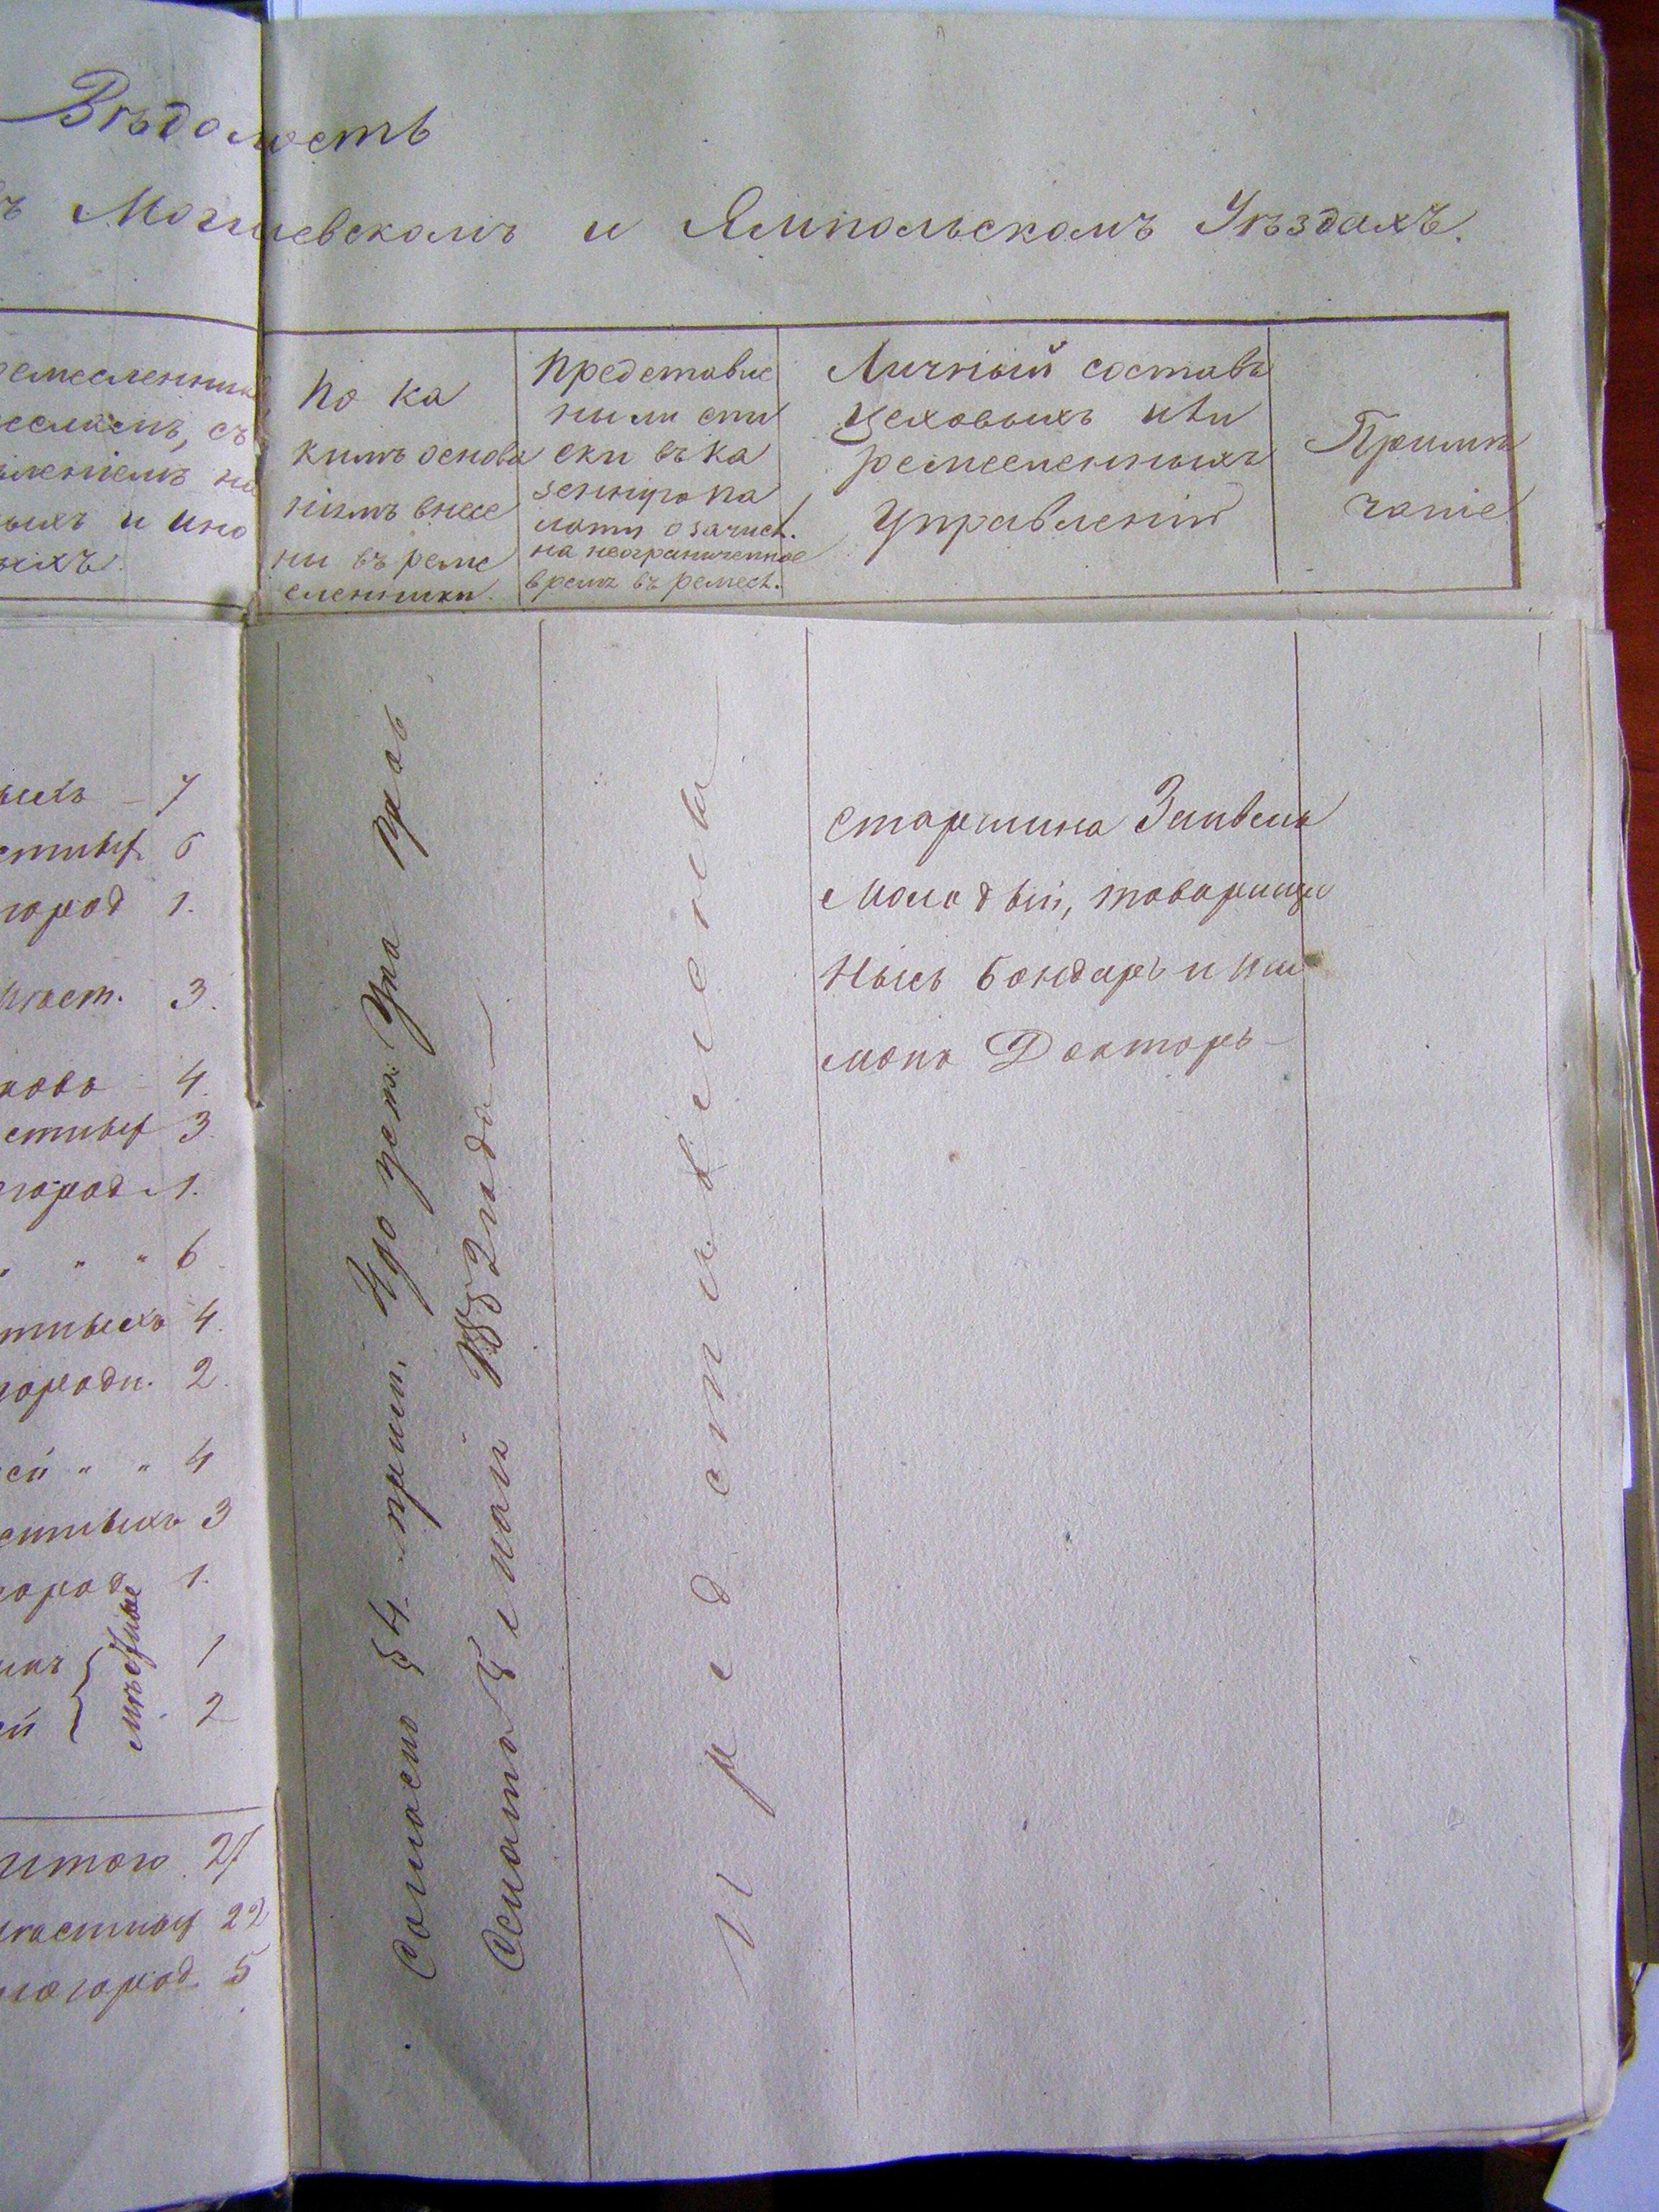 Вѣдомость
въ Могилевскомъ и Ямпольскомъ Уѣздахъ.
ремесленник
ремесламъ, съ
ленiемъ на
ныхъ и ино
ныхъ.
По ка
кимъ основа
нiямъ внесе
ны въ реме
сленники.
Представле
ны ли спи
ски въ ка
зенную па
лату о зачисл.
на неограниченное
время въ ремесл.
Личный составъ
цеховыхъ или
ремесленныхъ
Управленiй
Примѣ
чанiе
ыхъ – 7
стныхъ 6
город 1.
мѣст. 3.
ковъ – 4.
стныхъ 3.
город. 1.
" " " 6.
стныхъ 4.
городн. 2.
ей " " 4
стныхъ 3
город 1.
мѣстные
1
2
итого 27
мѣстныхъ 22
иногород. 5
Согласно § 4. прим. Удо уст. Упа
1852 года
представлены
Старшина Зейвель
Молодый, товарищи
Бондарь и Ши
монъ Докторъ